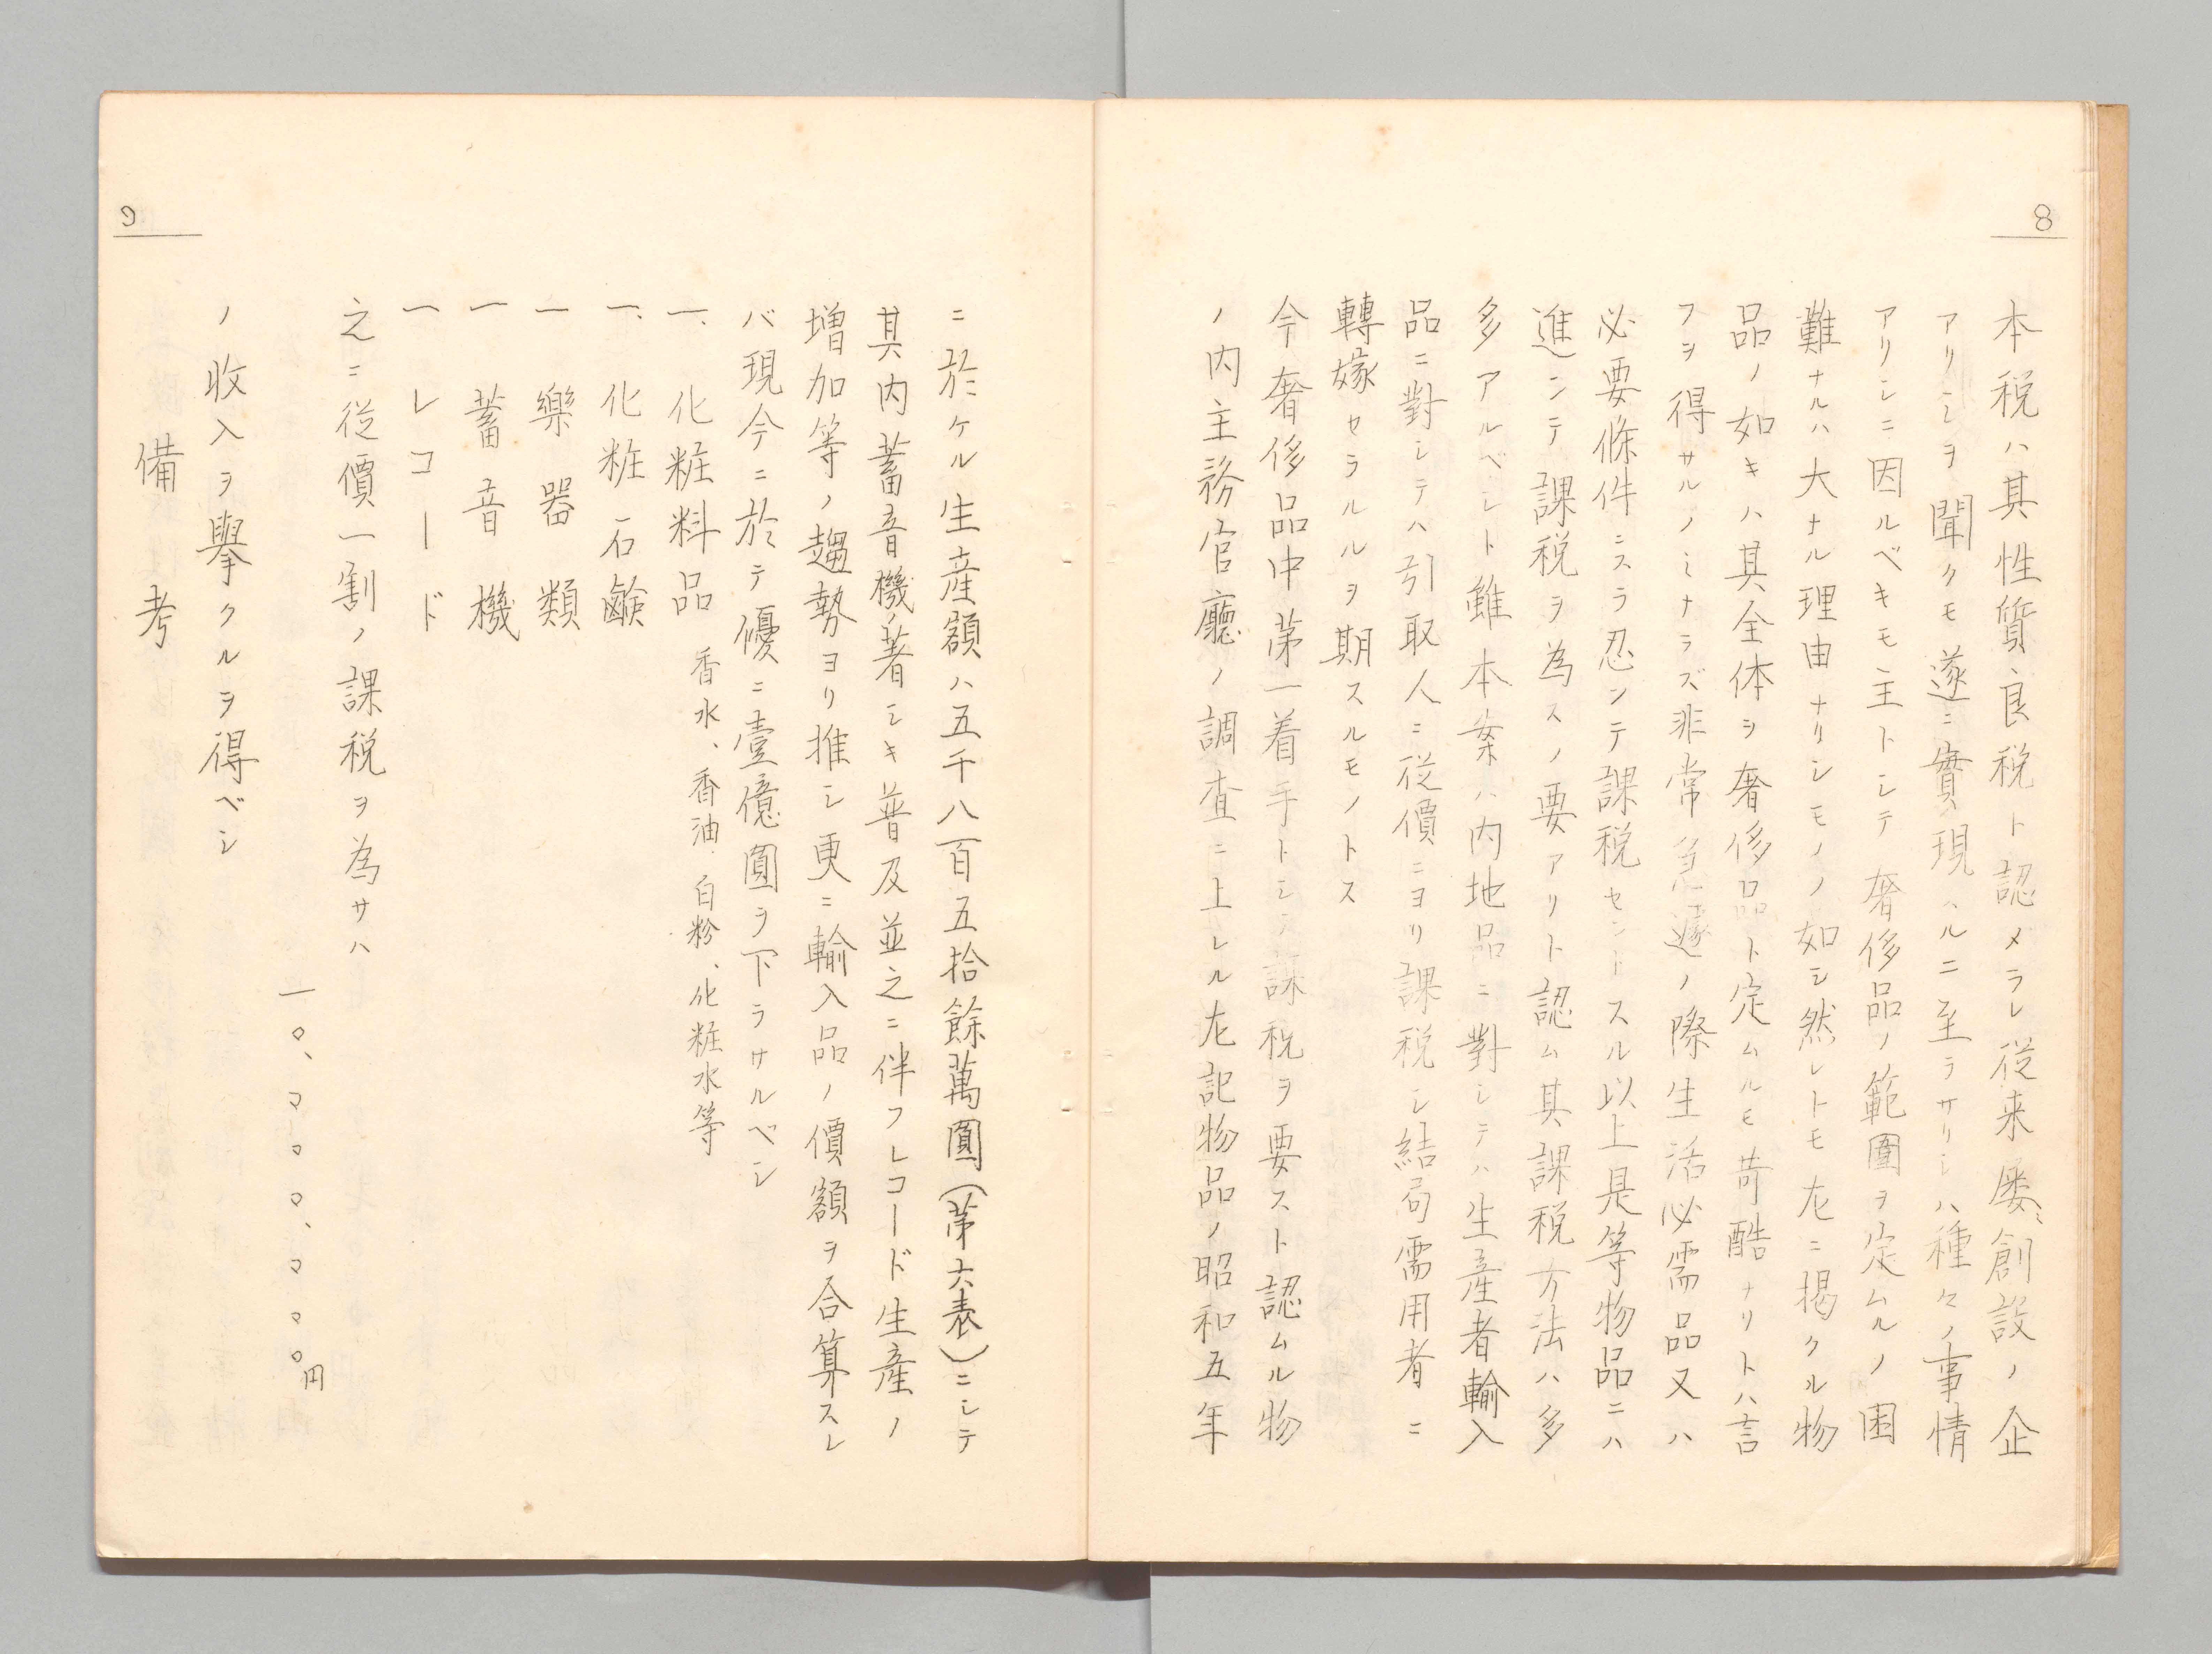 8
本税ハ其性質良税ト認メラレ従来屡々創設ノ企
アリシヲ聞クモ遂ニ實現ハルニ至ラサリシハ種々ノ事情
アリシニ因ルベキモ主トシテ奢侈品ノ範圍ヲ定ムルノ困
難ナルハ大ナル理由ナリシモノノ如シ然レトモ左ニ掲クル物
品ノ如キハ其全体ヲ奢侈品ト定ムルモ苛酷ナリトハ言
フヲ得サルノミナラズ非常急遽ノ際生活必需品又ハ
必要條件ニスラ忍ンテ課税セントスル以上是等物品ニハ
進ンテ課税ヲ為スノ要アリト認ム其課税方法ハ多
多アルベシト雖本案ハ内地品ニ對シテハ生産者輸入
品ニ對シテハ引取人ニ従價ニヨリ課税シ結局需用者ニ
轉嫁セラルルヲ期スルモノトス
今奢侈品中第一着手トシテ課税ヲ要スト認ムル物
ノ内主務官廳ノ調査ニ上レル左記物品ノ昭和五年
9
ニ於ケル生産額ハ五千八百五拾餘萬圓(第六表)ニシテ
其内蓄音機ノ著シキ普及並之ニ伴フレコード生産ノ
増加等ノ趨勢ヨリ推シ更ニ輸入品ノ價額ヲ合算スレ
バ現今ニ於テ優ニ壹億圓ヲ下ラサルベシ
一、化粧料品 香水、香油、白粉、化粧水等
一、化粧石鹸
一 樂器類
一 蓄音機
一 レコード
之ニ従價一割ノ課税ヲ為サハ
一〇、〇〇〇、〇〇〇円
ノ收入ヲ擧クルヲ得ベシ
備考